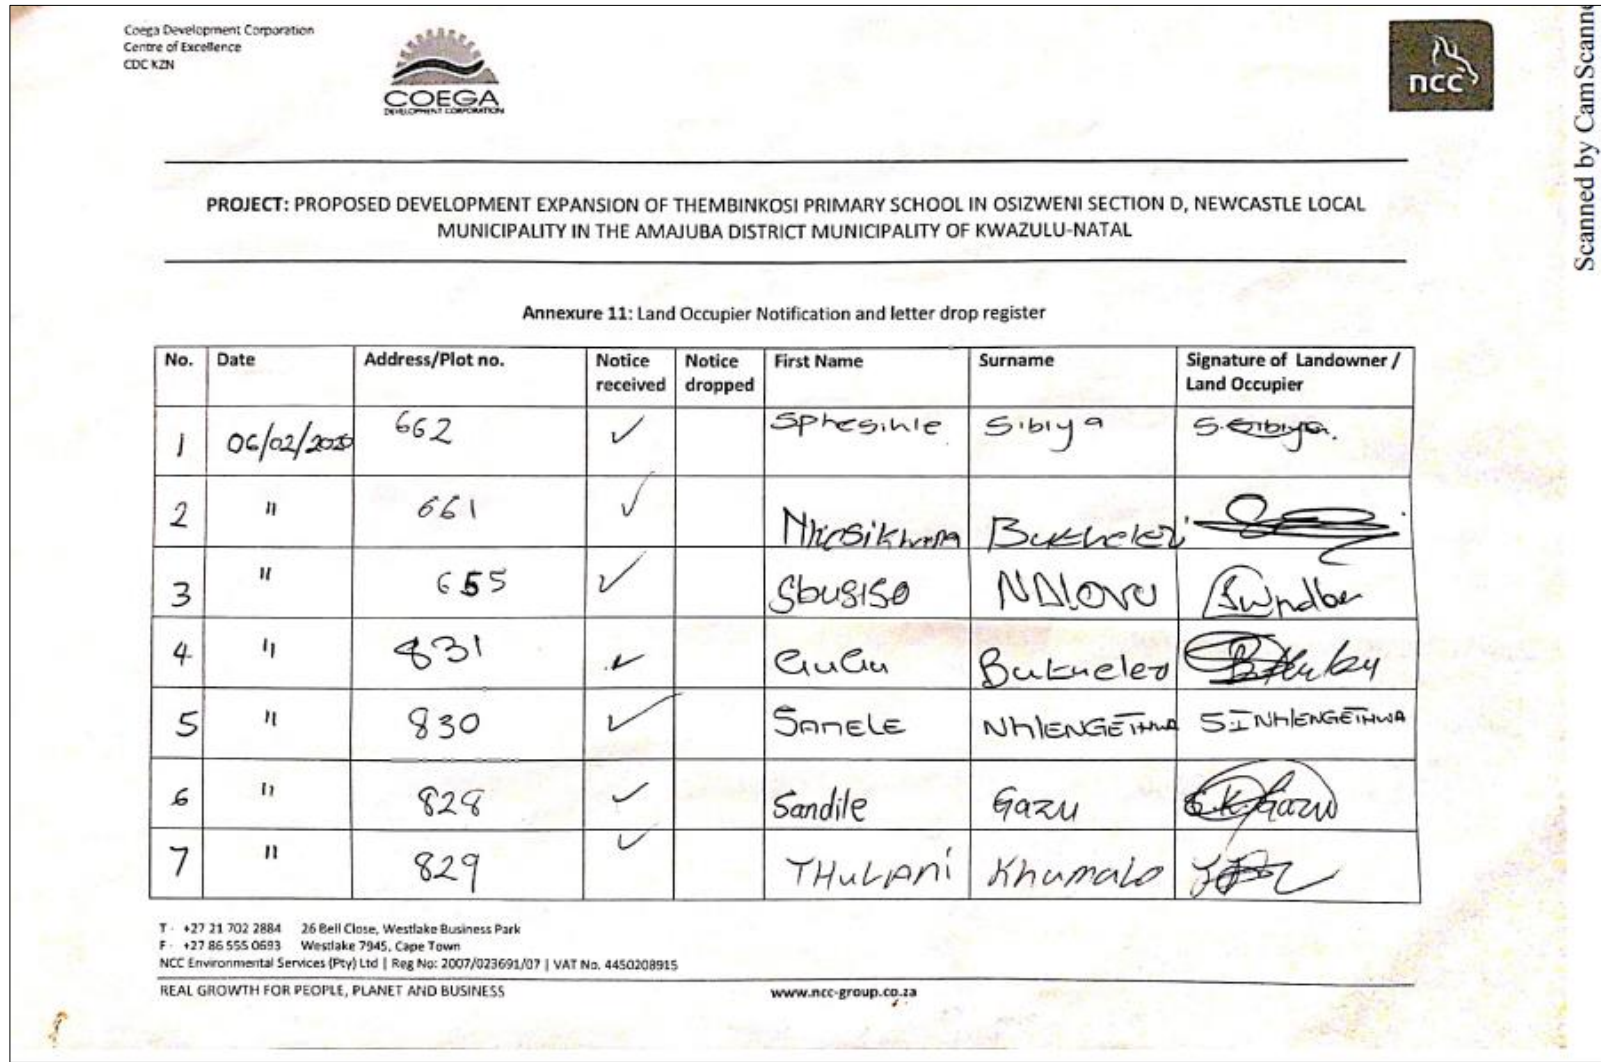 Coega Development Corporation
Centre of Excellence
CDC KZN
COEGA
DEVELOPMENT CORPORATION
ncc
Scanned by CamScanne
PROJECT: PROPOSED DEVELOPMENT EXPANSION OF THEMBINKOSI PRIMARY SCHOOL IN OSIZWENI SECTION D, NEWCASTLE LOCAL
MUNICIPALITY IN THE AMAJUBA DISTRICT MUNICIPALITY OF KWAZULU-NATAL
Annexure 11: Land Occupier Notification and letter drop register
No. Date Address/Plot no. Notice received Notice dropped First Name Surname Signature of Landowner / Land Occupier
1 06/02/2020 662 ✓ Sphesihle Sibiya S.Sibiya.
2 " 661 ✓ Buthelezi
3 " 655 ✓ Sbusiso NDlovu
4 " 831 ✓ GuGu Buthelezi
5 " 830 ✓ SAMELE NHlENGETHWA S.I NHlENGETHWA
6 " 828 ✓ Sandile Gazu S.K Gazu
7 " 829 ✓ THULANi Khumalo
T - +27 21 702 2884 26 Bell Close, Westlake Business Park
F - +27 86 555 0693 Westlake 7945, Cape Town
NCC Environmental Services (Pty) Ltd | Reg No: 2007/023691/07 | VAT No. 4450208915
REAL GROWTH FOR PEOPLE, PLANET AND BUSINESS www.ncc-group.co.za